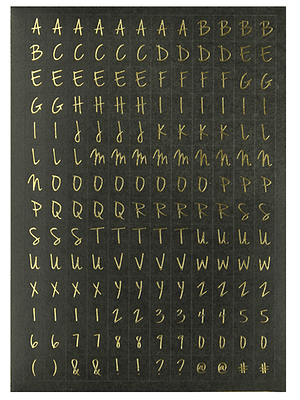 A A A A A A A A B B B B
B C C C C C D D D D E E
E E E E E E F F F F G G
G G H H H H I I I I I I
I I J J J J K K K K L L
L L L m m m m m n n n n
n O O O O O O O O P P P
P Q Q Q Q R R R R R S S
S S S T T T T T U U U U
U U U U V V V V W W W W
X X X X Y Y Y Y Z Z Z Z
1 1 1 1 2 2 3 3 4 4 5 5
6 6 7 7 8 8 9 9 0 0 0 0
( ) & & ! ! ? ? @ @ # #